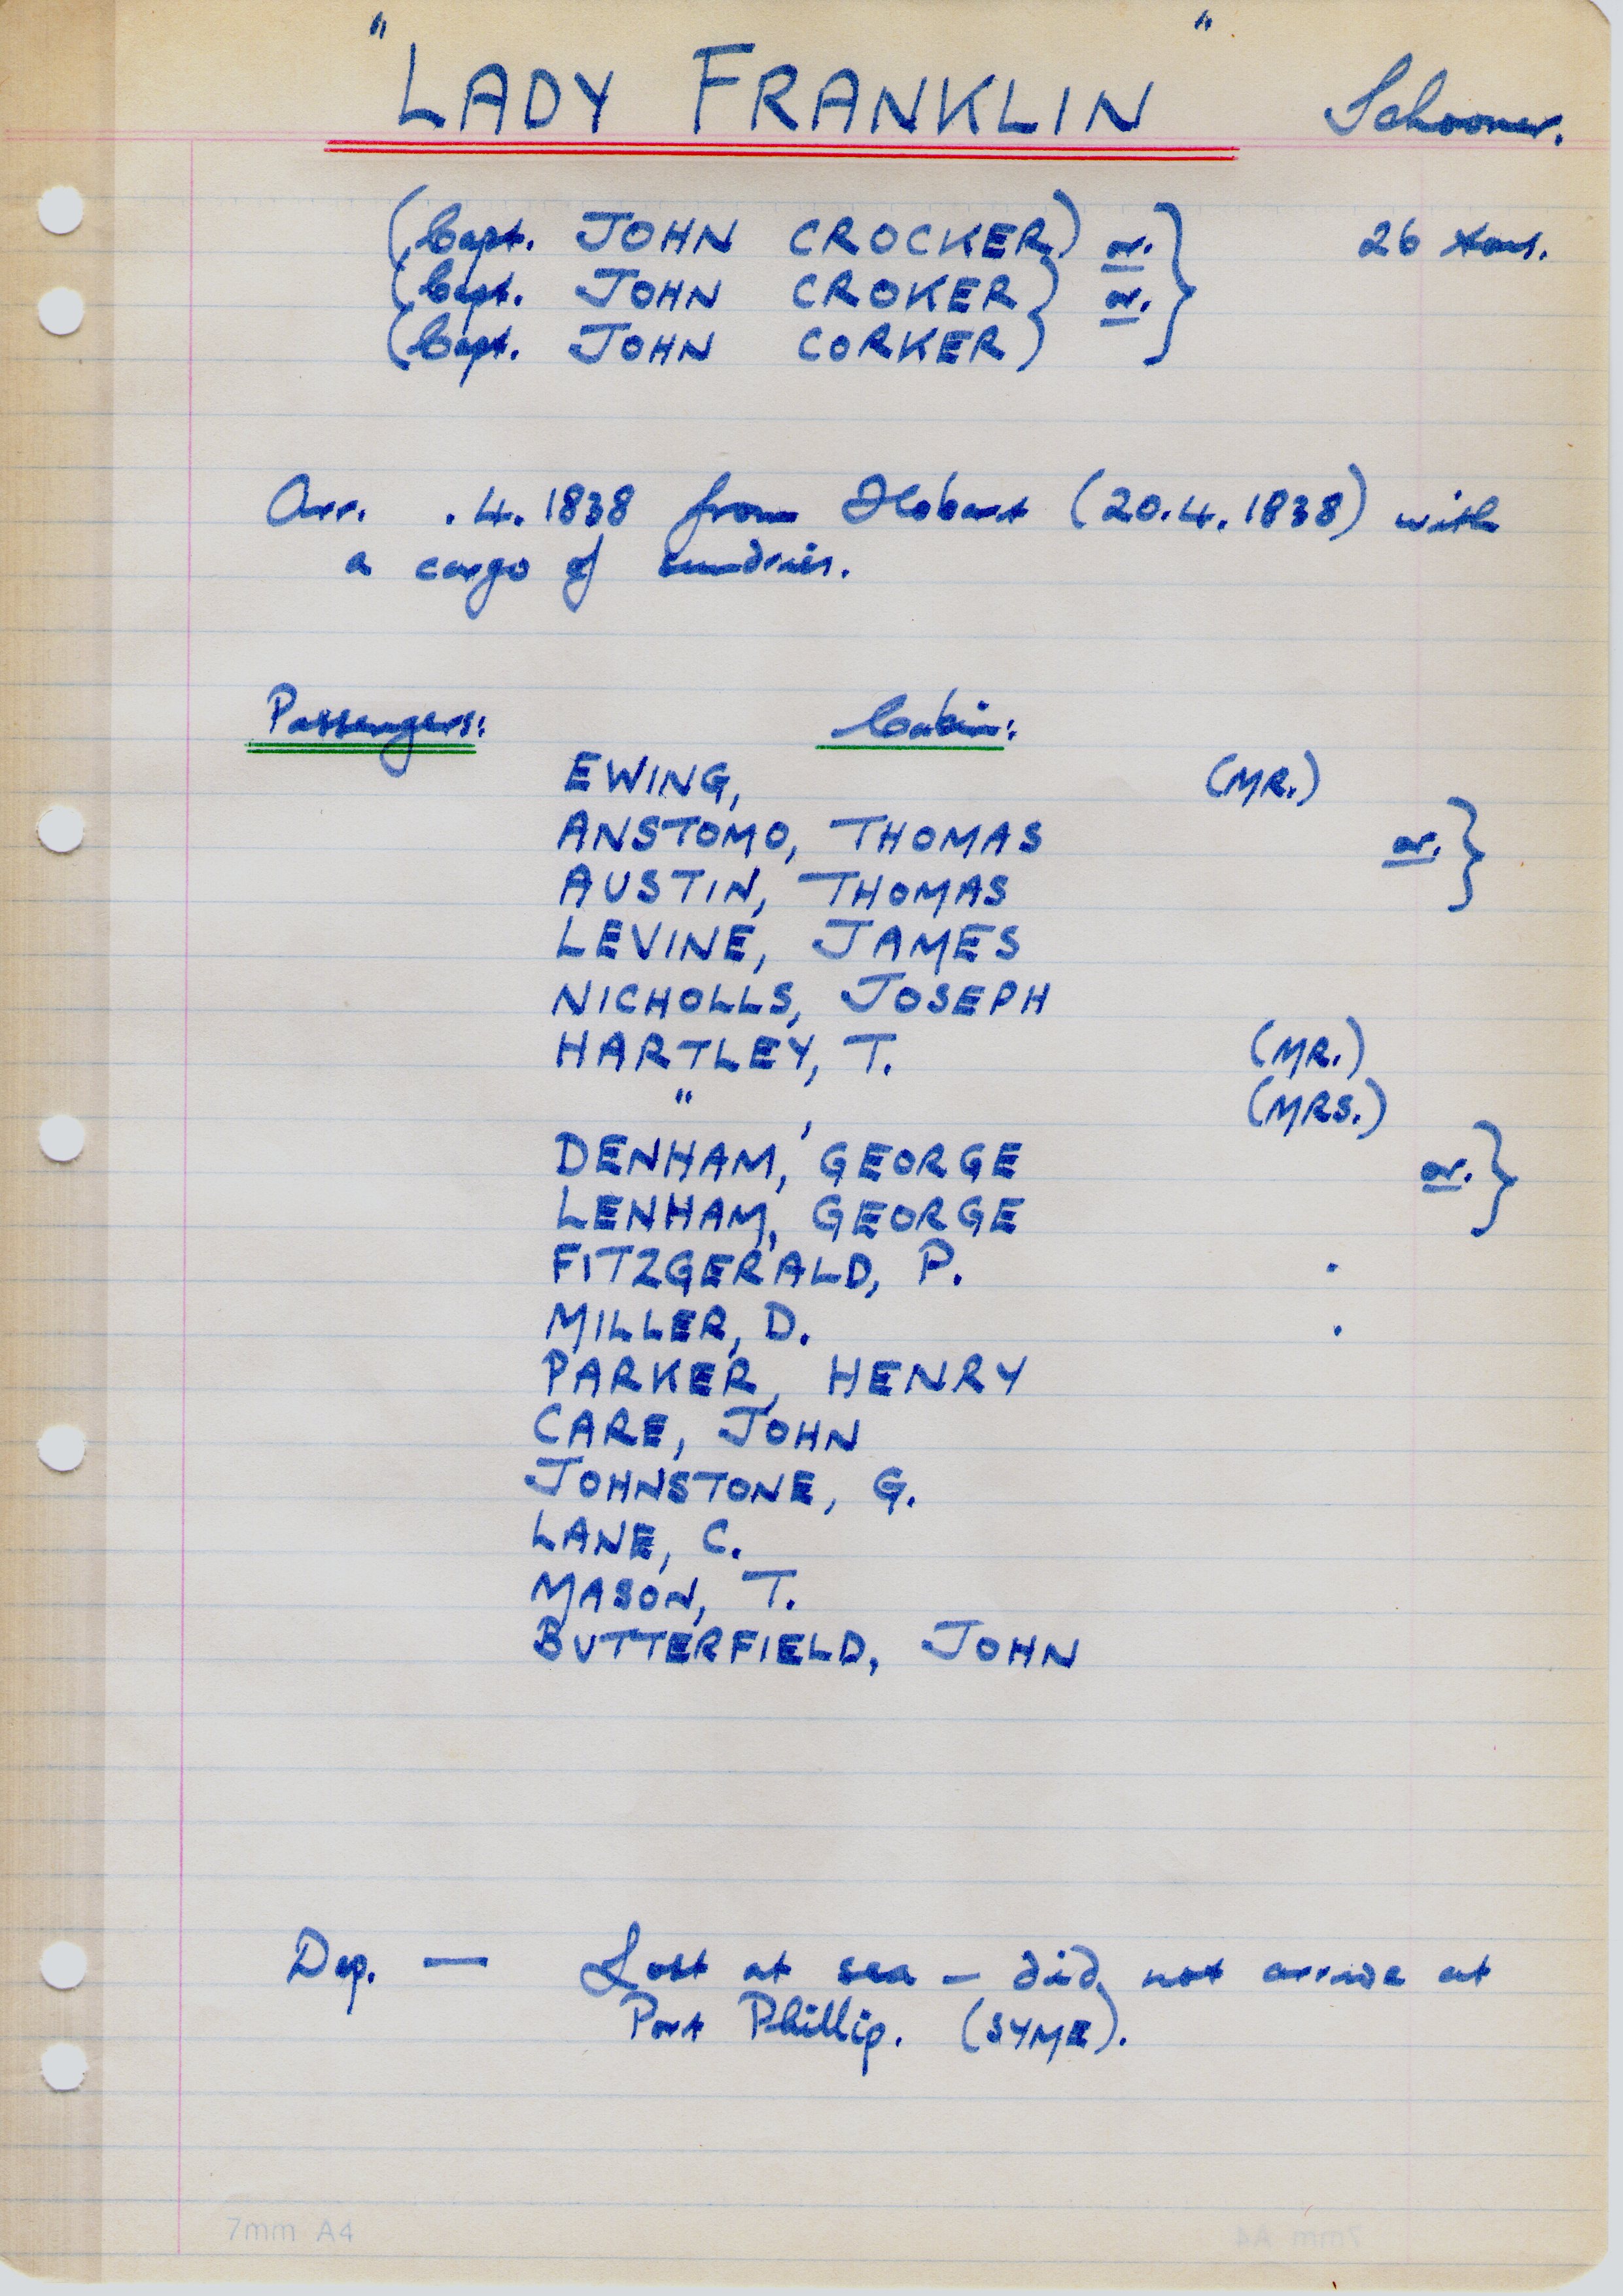 "LADY FRANKLIN" Schooner.
(Capt. JOHN CROCKER) or. } 26 tons.
(Capt. JOHN CROKER) or.
(Capt. JOHN CORKER)
Arr. .4.1838 from Hobart (20.4.1838) with
a cargo of sundries.
Passengers: Cabin:
EWING, (MR.)
ANSTOMO, THOMAS or. }
AUSTIN, THOMAS
LEVINE, JAMES
NICHOLLS, JOSEPH
HARTLEY, T. (MR.)
" , (MRS.)
DENHAM, GEORGE or. }
LENHAM, GEORGE
FITZGERALD, P. .
MILLER, D. .
PARKER, HENRY
CARE, JOHN
JOHNSTONE, G.
LANE, C.
MASON, T.
BUTTERFIELD, JOHN
Dep. — Lost at sea – did not arrive at
Port Phillip. (SYME).
7mm A4